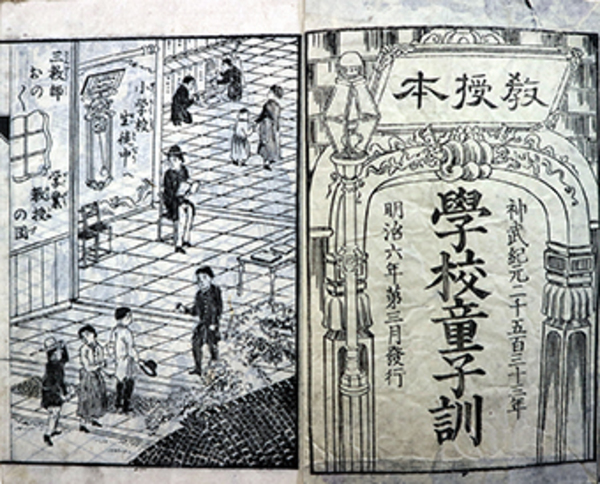 教授本
神武紀元二千五百三十三年
學校童子訓
明治六年第三月發行
小学校
生徒中へ
三教師
おの〱
学業
教授
の図